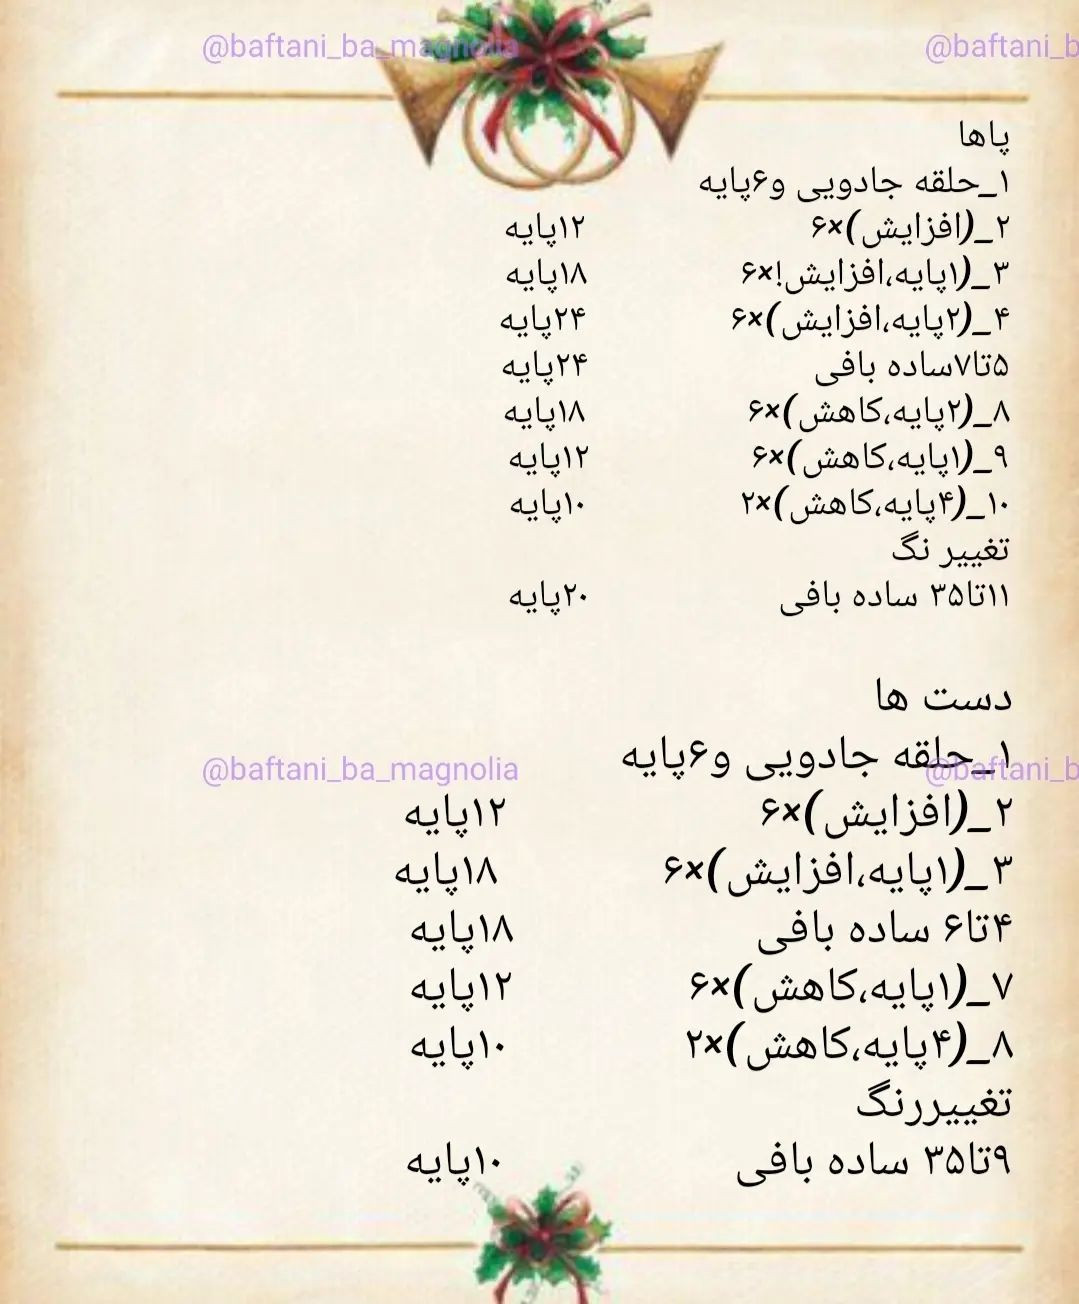 @baftani_ba_magnolia
@baftani_b
پاها
۱_حلقه جادویی و۶پایه
۲_(افزایش)×۶ ۱۲پایه
۳_(۱پایه،افزایش!×۶ ۱۸پایه
۴_(۲پایه،افزایش)×۶ ۲۴پایه
۵تا۷ساده بافی ۲۴پایه
۸_(۲پایه،کاهش)×۶ ۱۸پایه
۹_(۱پایه،کاهش)×۶ ۱۲پایه
۱۰_(۴پایه،کاهش)×۲ ۱۰پایه
تغییر نگ
۱۱تا۳۵ ساده بافی ۲۰پایه
دست ها
۱_حلقه جادویی و۶پایه
@baftani_ba_magnolia
@baftani_b
۲_(افزایش)×۶ ۱۲پایه
۳_(۱پایه،افزایش)×۶ ۱۸پایه
۴تا۶ ساده بافی ۱۸پایه
۷_(۱پایه،کاهش)×۶ ۱۲پایه
۸_(۴پایه،کاهش)×۲ ۱۰پایه
تغییررنگ
۹تا۳۵ ساده بافی ۱۰پایه